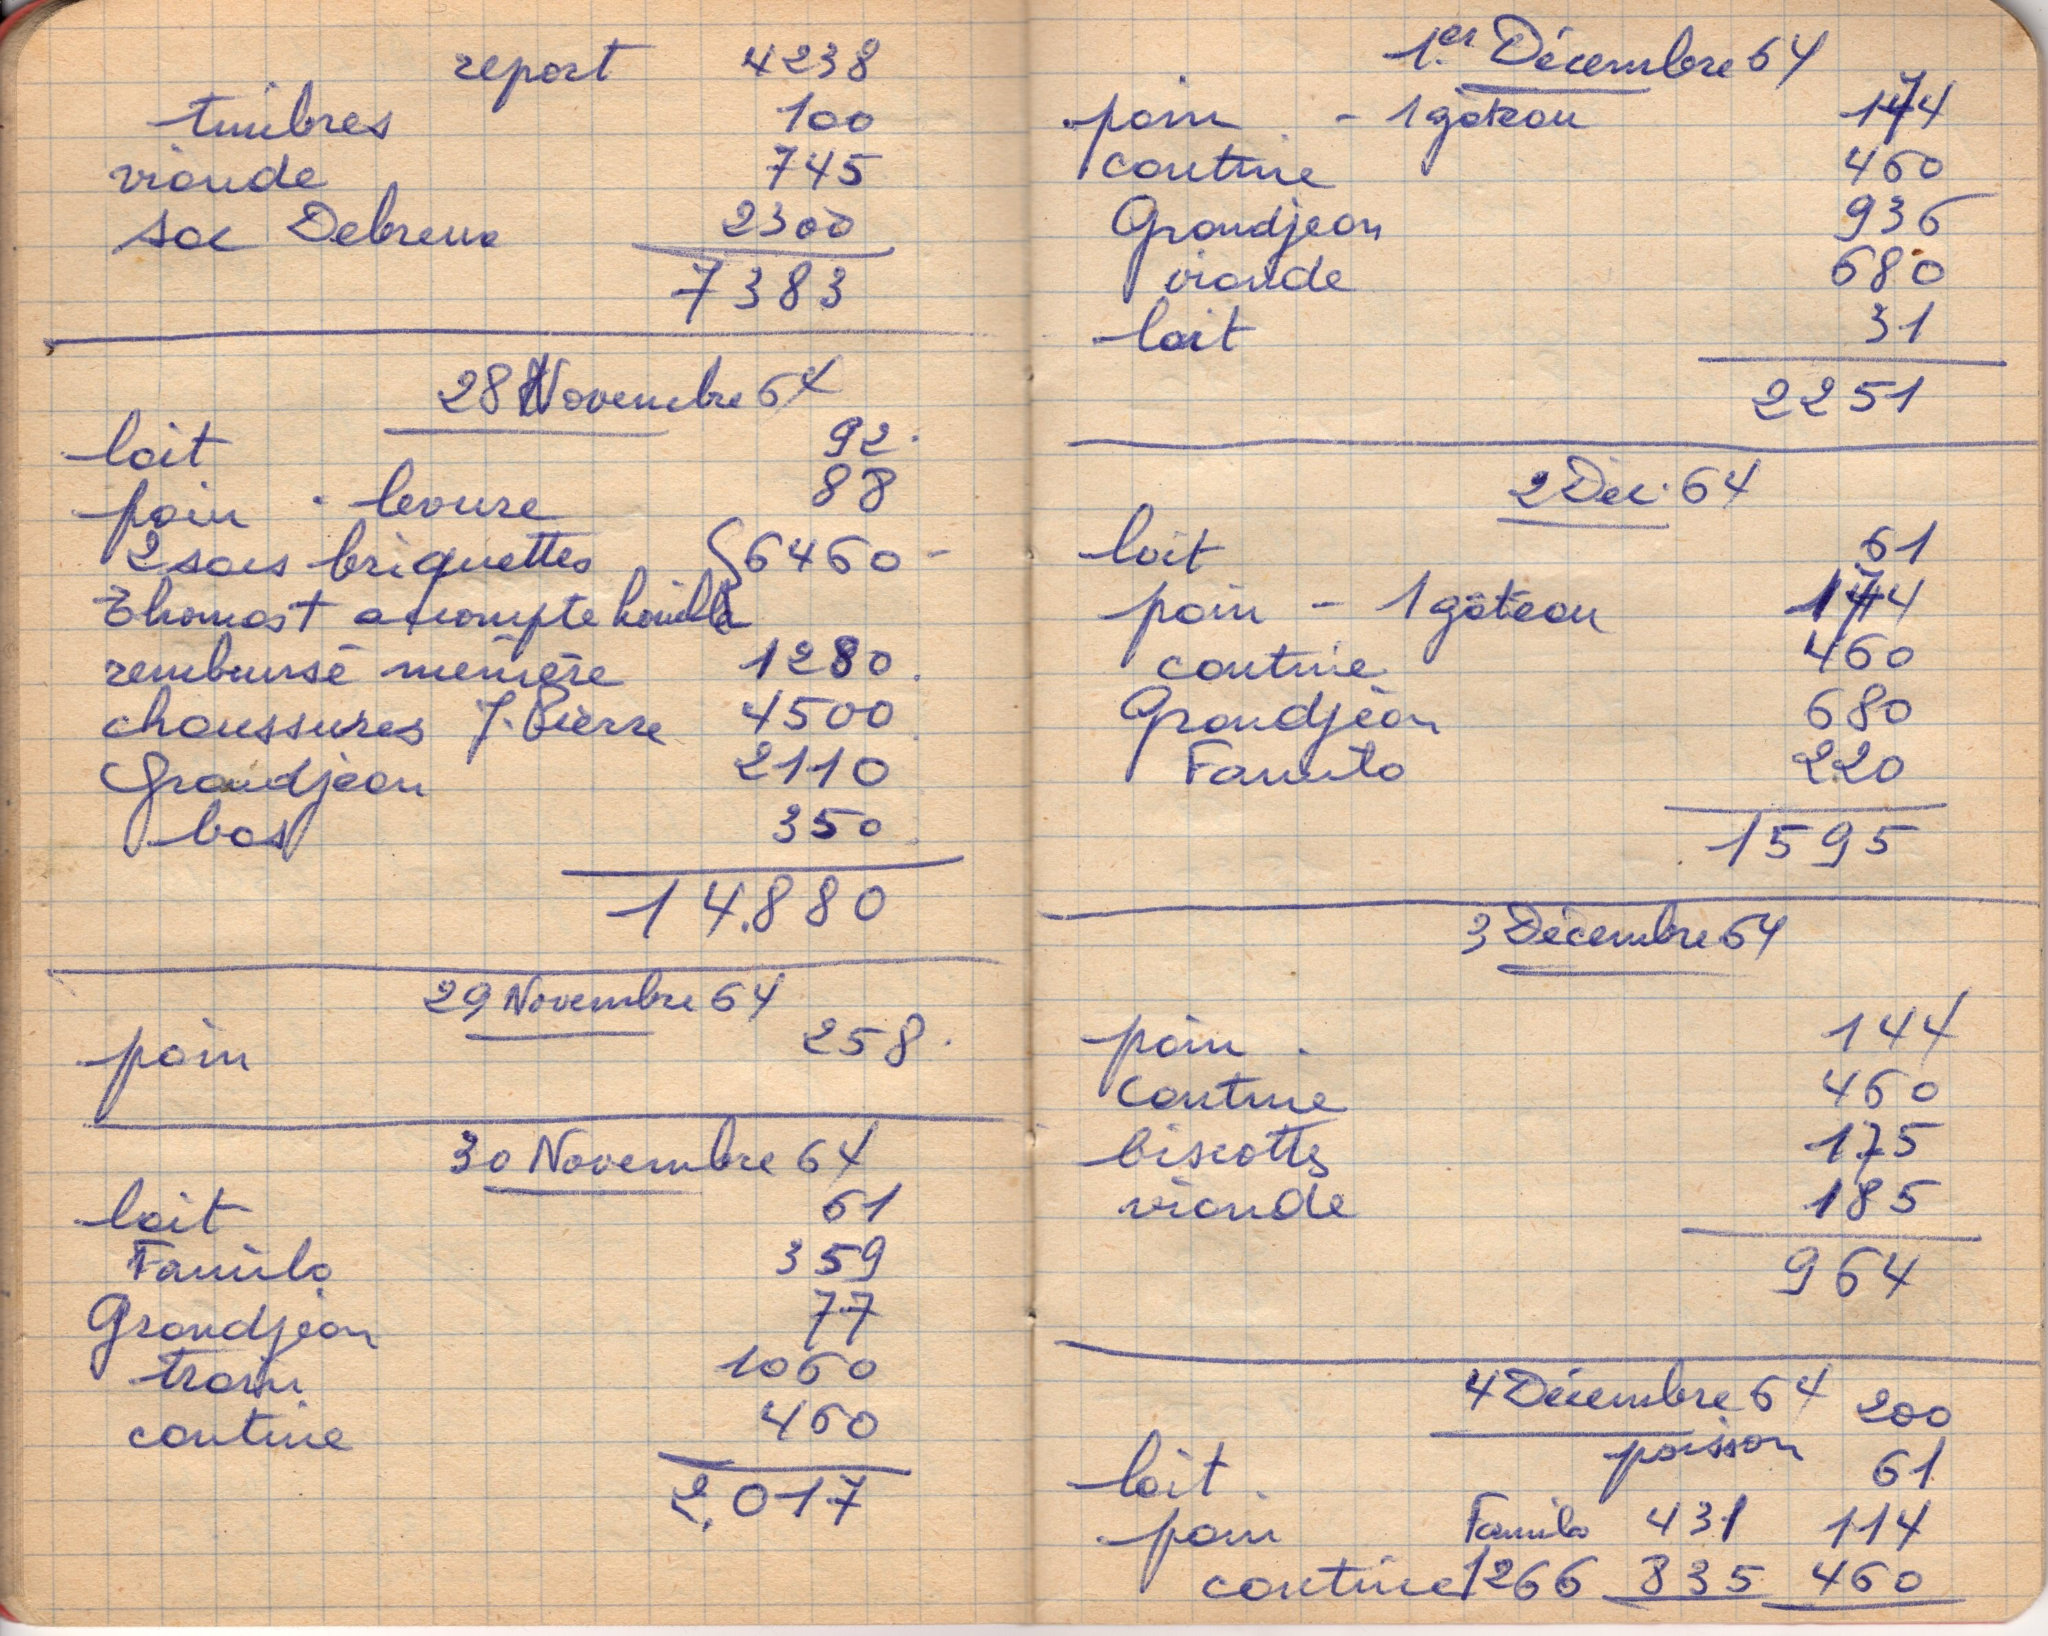 report 4238
timbres 100
viande 745
sac Debreux 2300
7383
28 Novembre 64
lait 92
pain - levure 88
2 sacs briquettes 6460
Thomast acompte houille
remboursé mémère 1280
chaussures J. Pierre 4500
Grandjean 2110
bas 350
14.880
29 Novembre 64
pain 258
30 Novembre 64
lait 61
Familo 359
Grandjean 77
train 1060
cantine 460
2.017
1er Décembre 64
pain - 1 gâteau 144
cantine 460
Grandjean 936
viande 680
lait 31
2251
2 Dec. 64
lait 61
pain - 1 gâteau 174
cantine 460
Grandjean 680
Familo 220
1595
3 Décembre 64
pain 144
cantine 460
biscottes 175
viande 185
964
4 Décembre 64 200
poisson
lait 61
pain Familo 431 114
cantine 1266 835 460